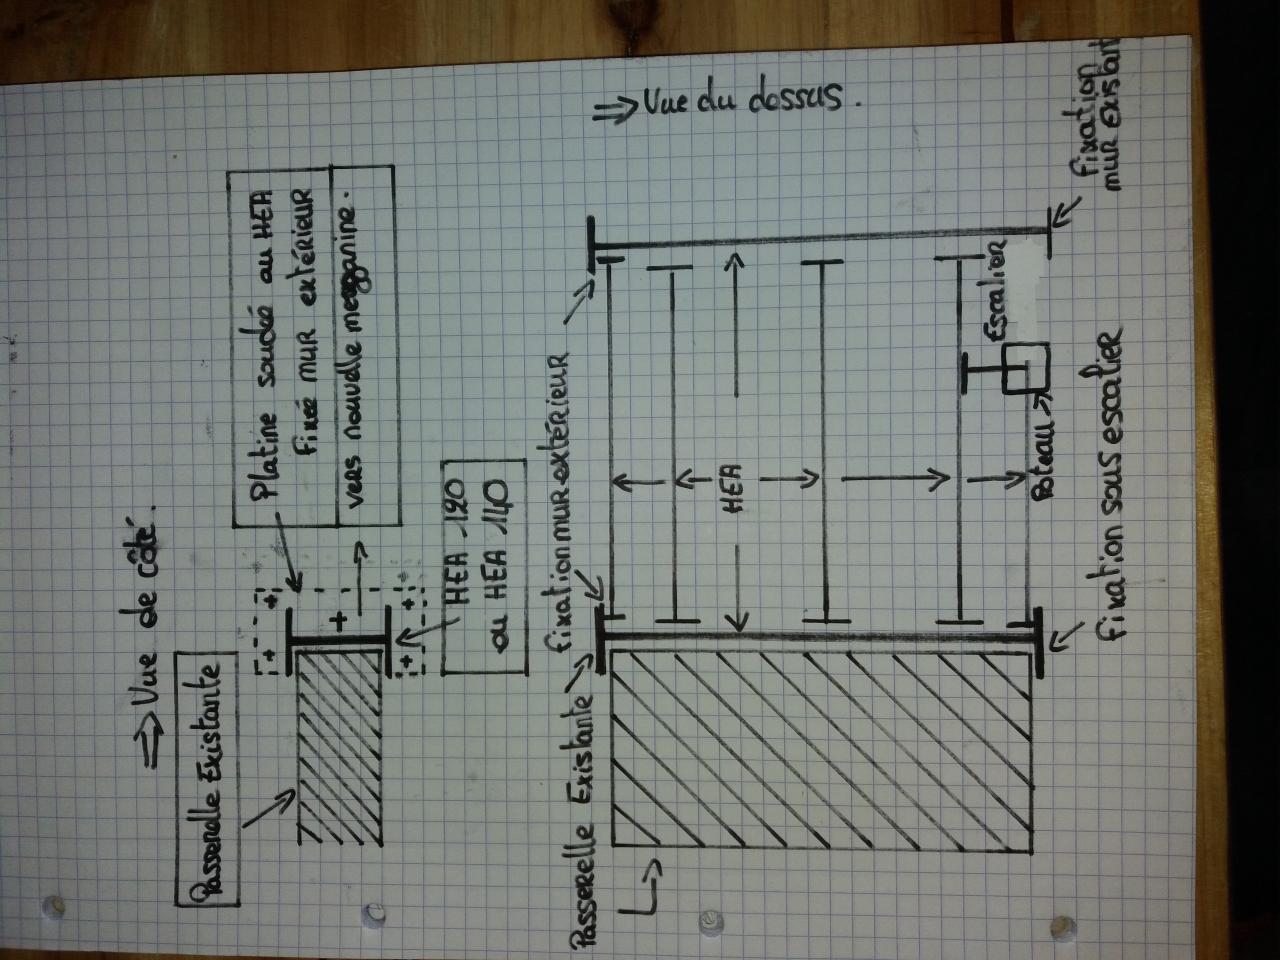 ⇒ Vue de côté.
Passerelle Existante
Platine soudée au HEA
fixée mur extérieur
vers nouvelle mezzanine.
HEA 120
ou HEA 140
⇒ Vue du dessus.
Passerelle Existante
fixation mur extérieur
HEA
Escalier
Poteau
fixation
mur existant
fixation sous escalier